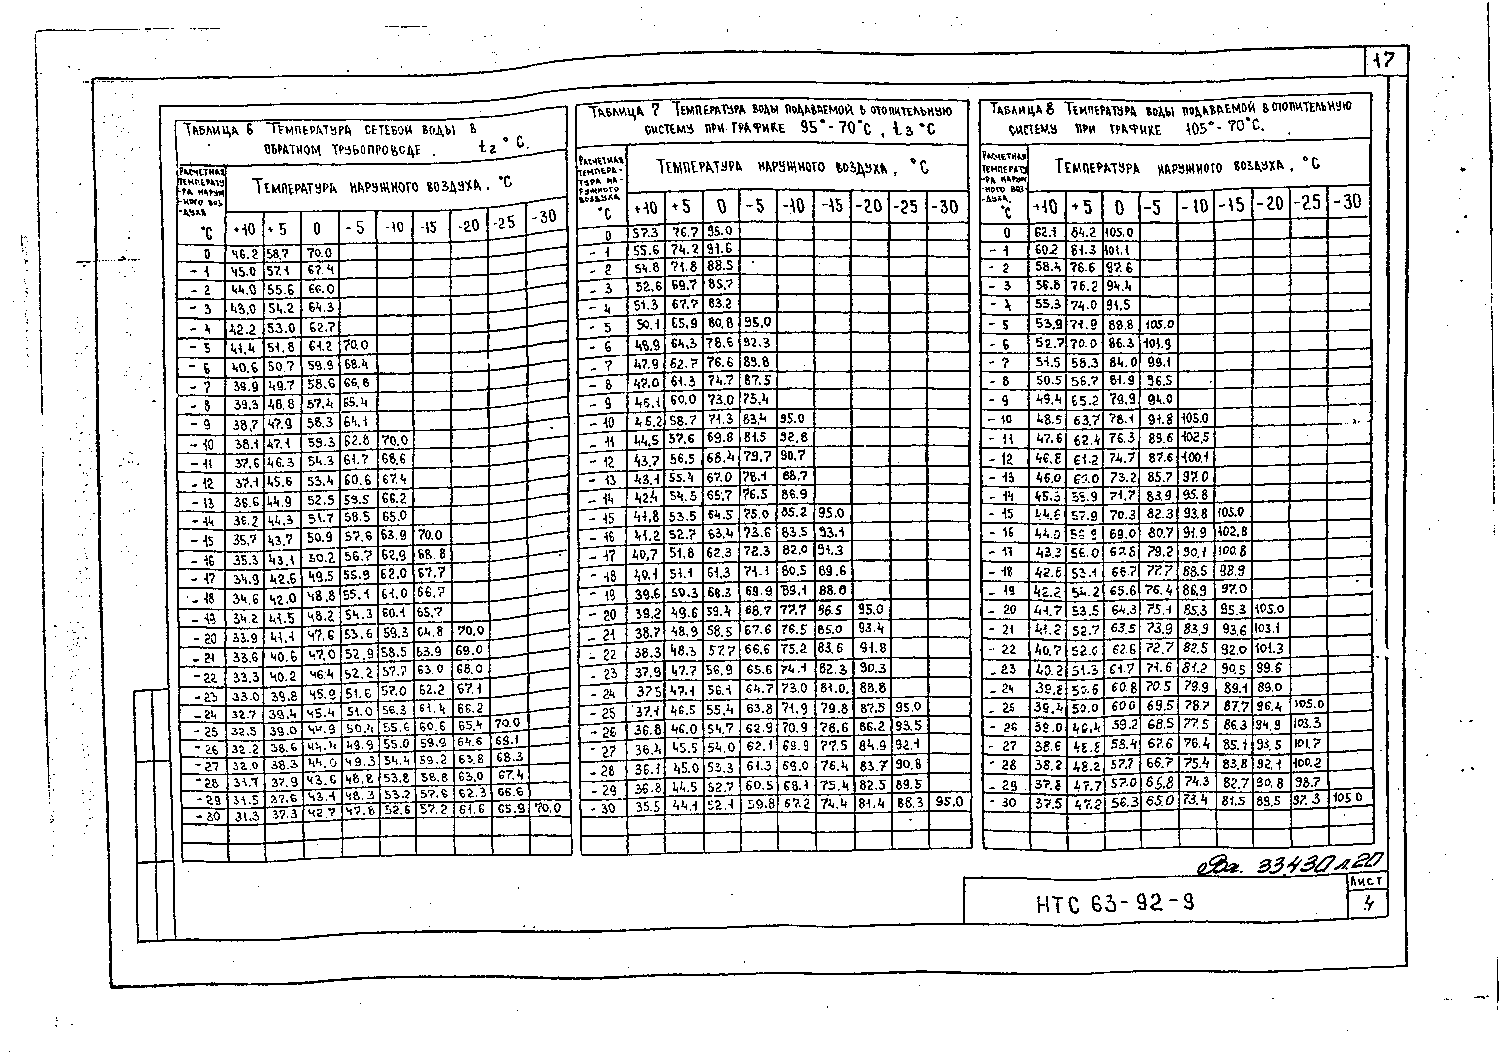 17
ТАБЛИЦА 6 ТЕМПЕРАТУРА СЕТЕВОЙ ВОДЫ В
ОБРАТНОМ ТРУБОПРОВОДЕ t2 °C.
РАСЧЕТНАЯ ТЕМПЕРАТУРА НАРУЖНОГО ВОЗДУХА °C
ТЕМПЕРАТУРА НАРУЖНОГО ВОЗДУХА, °C
+10 +5 0 -5 -10 -15 -20 -25 -30
0 46.2 58.7 70.0
-1 45.0 57.1 67.4
-2 44.0 55.6 66.0
-3 43.0 54.2 64.3
-4 42.2 53.0 62.7
-5 41.4 51.8 61.2 70.0
-6 40.6 50.7 59.9 68.4
-7 39.9 49.7 58.6 66.8
-8 39.3 48.8 57.4 65.4
-9 38.7 47.9 56.3 64.1
-10 38.1 47.1 59.3 62.8 70.0
-11 37.6 46.3 54.3 61.7 68.6
-12 37.1 45.6 53.4 60.6 67.4
-13 36.6 44.9 52.5 59.5 66.2
-14 36.2 44.3 51.7 58.5 65.0
-15 35.7 43.7 50.9 57.6 63.9 70.0
-16 35.3 43.1 50.2 56.7 62.9 68.8
-17 34.9 42.6 49.5 55.9 62.0 67.7
-18 34.6 42.0 48.8 55.1 61.0 66.7
-19 34.2 41.5 48.2 54.3 60.1 65.7
-20 33.9 41.1 47.6 53.6 59.3 64.8 70.0
-21 33.6 40.6 47.0 52.9 58.5 63.9 69.0
-22 33.3 40.2 46.4 52.2 57.7 63.0 68.0
-23 33.0 39.8 45.9 51.6 57.0 62.2 67.1
-24 32.7 39.4 45.4 51.0 56.3 61.4 66.2
-25 32.5 39.0 44.9 50.4 55.6 60.6 65.4 70.0
-26 32.2 38.6 44.4 49.9 55.0 59.9 64.6 69.1
-27 32.0 38.3 44.0 49.3 54.4 59.2 63.8 68.3
-28 31.7 37.9 43.6 48.8 53.8 58.8 63.0 67.4
-29 31.5 37.6 43.1 48.3 53.2 57.8 62.3 66.6
-30 31.3 37.3 42.7 47.8 52.6 57.2 61.6 65.9 70.0
ТАБЛИЦА 7 ТЕМПЕРАТУРА ВОДЫ ПОДАВАЕМОЙ В ОТОПИТЕЛЬНУЮ
СИСТЕМУ ПРИ ГРАФИКЕ 95°-70°C, t3 °C
РАСЧЕТНАЯ ТЕМПЕРАТУРА НАРУЖНОГО ВОЗДУХА °C
ТЕМПЕРАТУРА НАРУЖНОГО ВОЗДУХА, °C
+10 +5 0 -5 -10 -15 -20 -25 -30
0 57.3 76.7 95.0
-1 55.6 74.2 91.6
-2 54.8 71.8 88.5
-3 52.6 69.7 85.7
-4 51.3 67.7 83.2
-5 50.1 65.9 80.8 95.0
-6 48.9 64.3 78.6 92.3
-7 47.9 62.7 76.6 89.8
-8 47.0 61.3 74.7 87.5
-9 46.1 60.0 73.0 75.4
-10 45.2 58.7 71.3 83.4 95.0
-11 44.5 57.6 69.8 81.5 92.8
-12 43.7 56.5 68.4 79.7 90.7
-13 43.1 55.4 67.0 78.1 88.7
-14 42.4 54.5 65.7 76.5 86.9
-15 41.8 53.5 64.5 75.0 85.2 95.0
-16 41.2 52.7 63.4 73.6 83.5 93.1
-17 40.7 51.8 62.3 72.3 82.0 91.3
-18 40.1 51.1 61.3 71.1 80.5 89.6
-19 39.6 50.3 68.3 69.9 89.1 88.0
-20 39.2 49.6 59.4 68.7 77.7 96.5 95.0
-21 38.7 48.9 58.5 67.6 76.5 85.0 93.4
-22 38.3 48.3 57.7 66.6 75.2 83.6 91.8
-23 37.9 47.7 56.9 65.6 74.1 82.3 90.3
-24 37.5 47.1 56.1 64.7 73.0 81.0. 88.8
-25 37.1 46.5 55.4 63.8 71.9 79.8 87.5 95.0
-26 36.8 46.0 54.7 62.9 70.9 78.6 86.2 93.5
-27 36.4 45.5 54.0 62.1 69.9 77.5 84.9 92.1
-28 36.1 45.0 53.3 61.3 69.0 76.4 83.7 90.8
-29 36.8 44.5 52.7 60.5 68.1 75.4 82.5 89.5
-30 35.5 44.1 52.1 59.8 67.2 74.4 81.4 88.3 95.0
ТАБЛИЦА 8 ТЕМПЕРАТУРА ВОДЫ ПОДАВАЕМОЙ В ОТОПИТЕЛЬНУЮ
СИСТЕМУ ПРИ ГРАФИКЕ 105°-70°C.
РАСЧЕТНАЯ ТЕМПЕРАТУРА НАРУЖНОГО ВОЗДУХА. °C
ТЕМПЕРАТУРА НАРУЖНОГО ВОЗДУХА, °C
+10 +5 0 -5 -10 -15 -20 -25 -30
0 62.1 84.2 105.0
-1 60.2 81.3 101.1
-2 58.4 78.6 97.6
-3 56.8 76.2 94.4
-4 55.3 74.0 91.5
-5 53.9 71.9 88.8 105.0
-6 52.7 70.0 86.3 101.9
-7 51.5 58.3 84.0 99.1
-8 50.5 56.7 81.9 96.5
-9 49.4 65.2 79.9 94.0
-10 48.5 63.7 78.1 91.8 105.0
-11 47.6 62.4 76.3 89.6 102.5
-12 46.8 61.2 74.7 87.6 100.1
-13 46.0 60.0 73.2 85.7 97.0
-14 45.3 58.9 71.7 83.9 95.8
-15 44.6 57.9 70.3 82.3 93.8 105.0
-16 44.0 56.9 69.0 80.7 91.9 102.8
-17 43.3 56.0 67.8 79.2 90.1 100.8
-18 42.6 53.1 66.7 77.7 88.5 98.9
-19 42.2 54.2 65.6 76.4 86.9 97.0
-20 41.7 53.5 64.3 75.1 85.3 95.3 105.0
-21 41.2 52.7 63.5 73.9 83.9 93.6 103.1
-22 40.7 52.0 62.6 72.7 82.5 92.0 101.3
-23 40.2 51.3 61.7 71.6 81.2 90.5 99.6
-24 39.8 50.6 60.8 70.5 79.9 89.1 89.0
-25 39.4 50.0 60.0 69.5 78.7 87.7 96.4 105.0
-26 39.0 46.4 59.2 68.5 77.5 86.3 94.9 103.3
-27 38.6 48.8 58.4 67.6 76.4 85.1 93.5 101.7
-28 38.2 48.2 57.7 66.7 75.4 83.8 92.1 100.2
-29 37.8 47.7 57.0 65.8 74.3 82.7 90.8 98.7
-30 37.5 47.2 56.3 65.0 73.4 81.5 89.5 97.3 105.0
33430 л.20
НТС 63-92-9
Лист
4